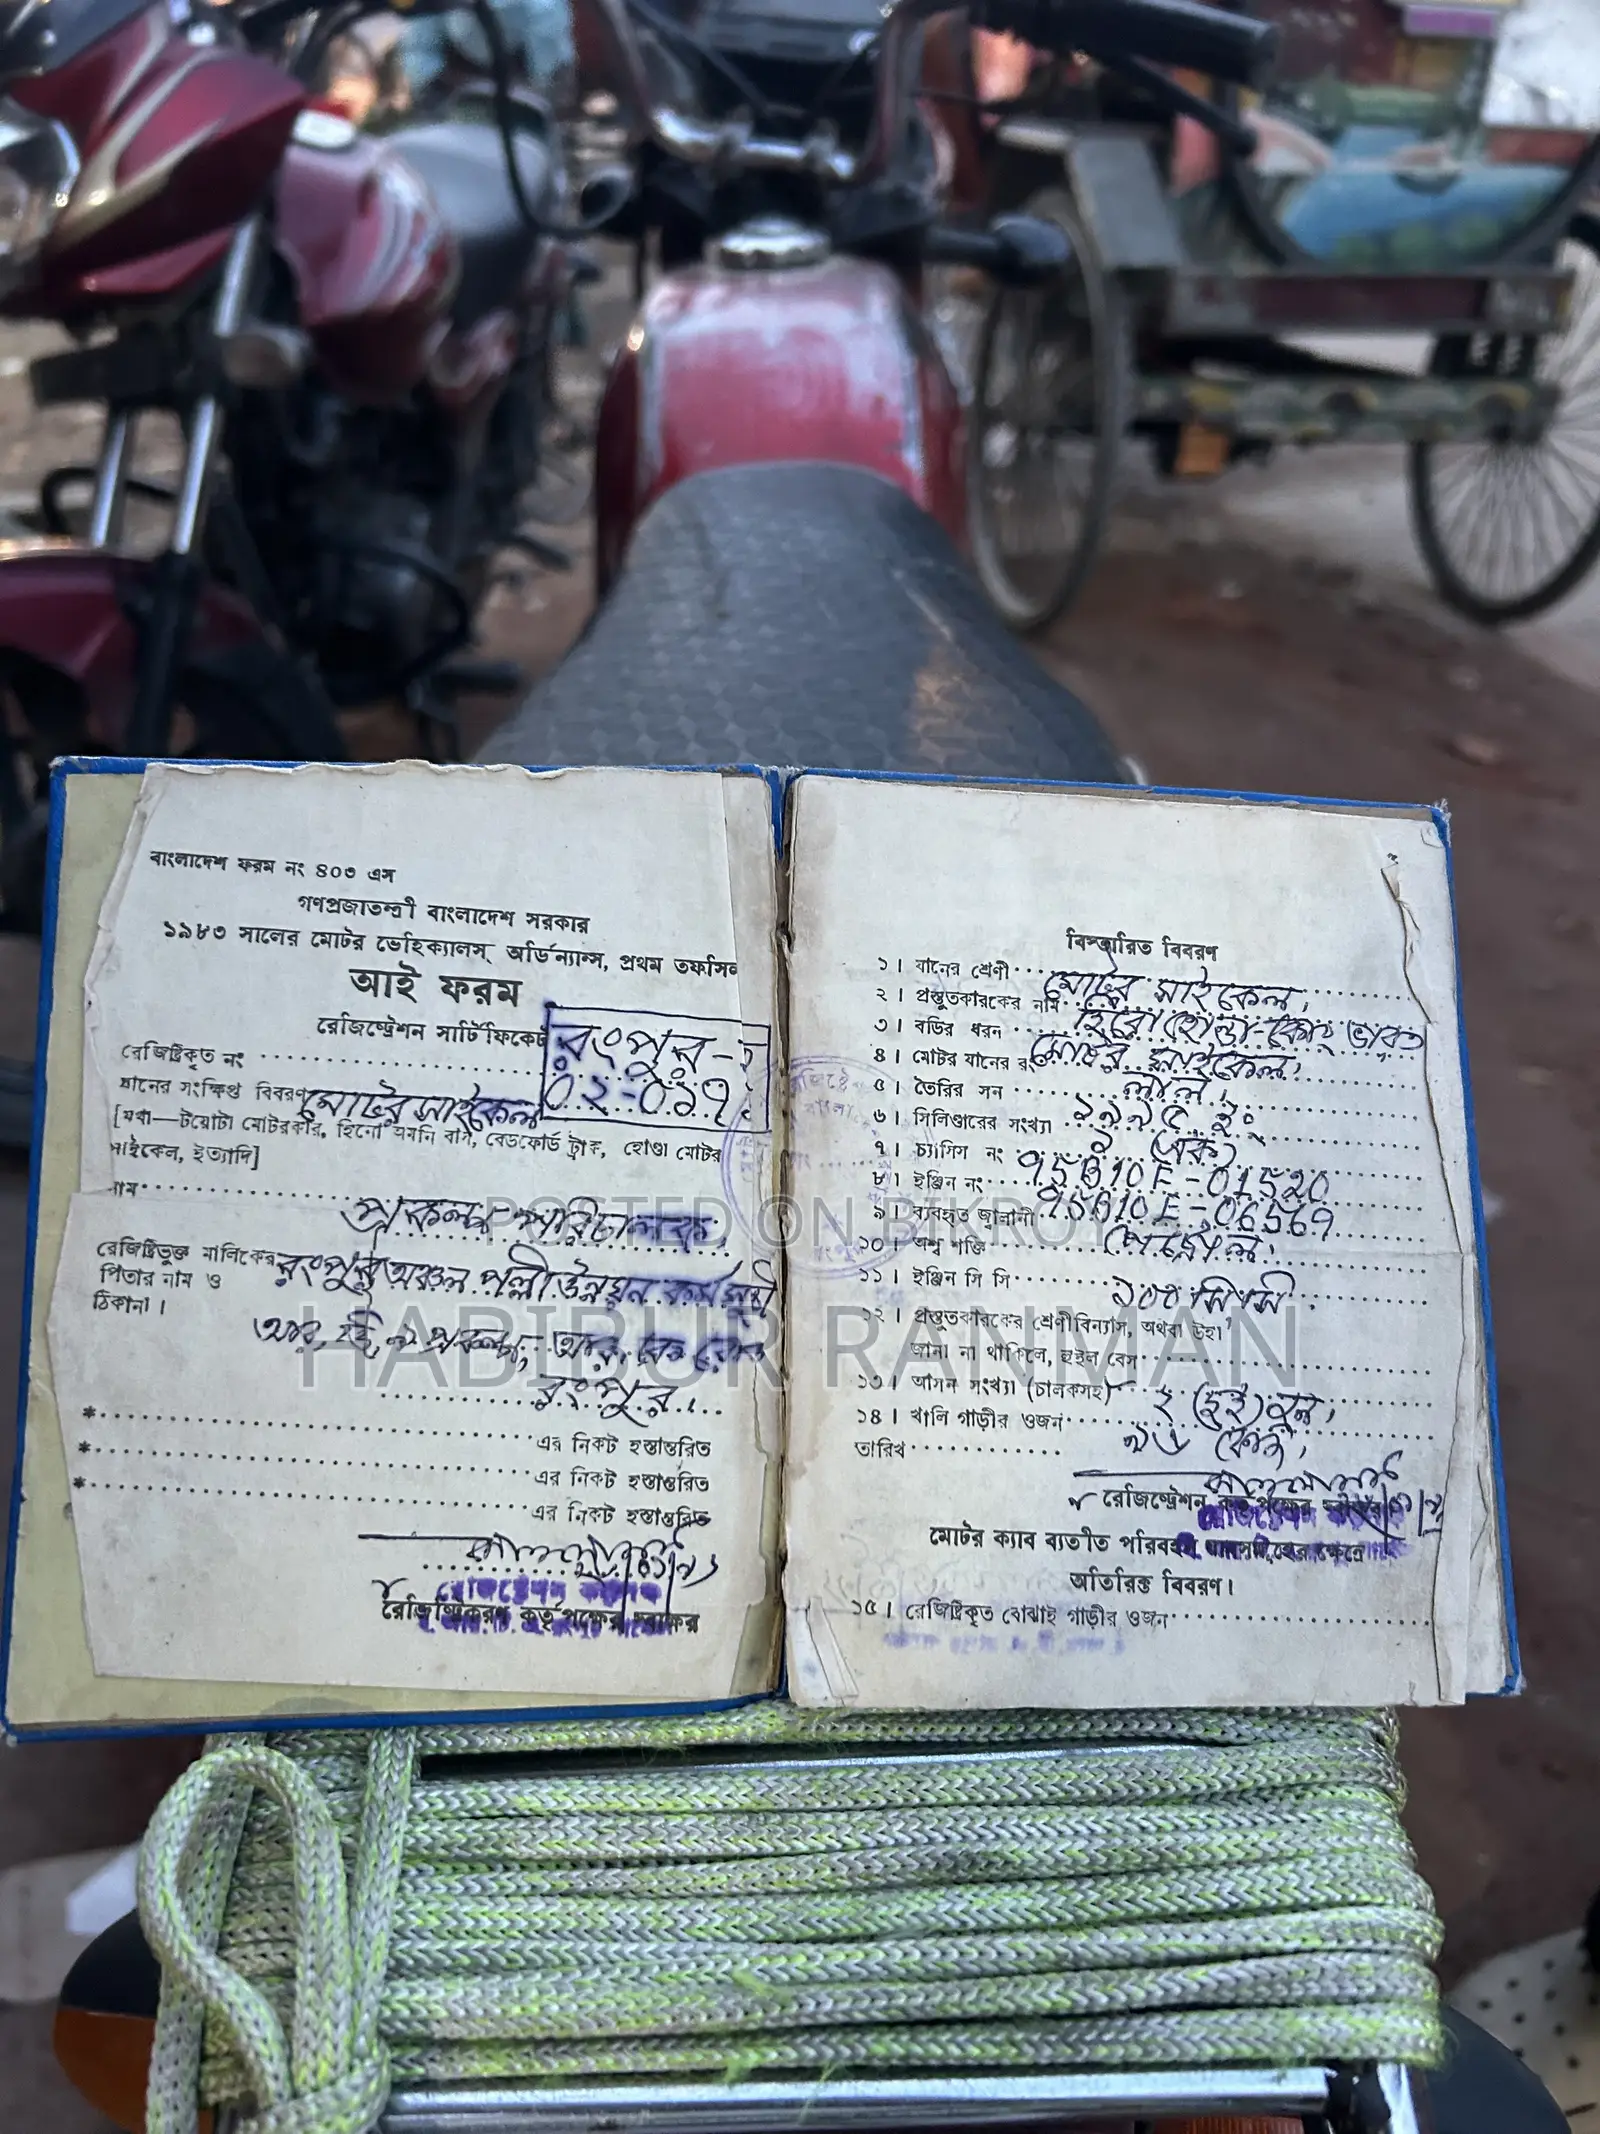 বাংলাদেশ ফরম নং ৪০৩ এস
গণপ্রজাতন্ত্রী বাংলাদেশ সরকার
১৯৮৩ সালের মোটর ভেহিক্যালস্ অর্ডিন্যান্স, প্রথম তফসিল
আই ফরম
রেজিষ্ট্রেশন সার্টিফিকেট
রংপুর-হ
০২-০১৭
রেজিষ্ট্রিকৃত নং
যানের সংক্ষিপ্ত বিবরণ মোটর সাইকেল
[যথা—টয়োটা মোটরকার, হিনো অমনি বাস, বেডফোর্ড ট্রাক, হোণ্ডা মোটর
সাইকেল, ইত্যাদি]
নাম
প্রকল্প পরিচালক,
রেজিষ্ট্রিভুক্ত মালিকের রংপুর অঞ্চল পল্লী উন্নয়ন কর্মসূচী
পিতার নাম ও
ঠিকানা।
আর, ডি, ৯ প্রকল্প, আর, কে রোড
রংপুর।
* এর নিকট হস্তান্তরিত
* এর নিকট হস্তান্তরিত
* এর নিকট হস্তান্তরিত
রেজিষ্ট্রিকরণ কর্তৃপক্ষের স্বাক্ষর
বিস্তারিত বিবরণ
১। যানের শ্রেণী মোটর সাইকেল,
২। প্রস্তুতকারকের নাম হিরো হোন্ডা কোং ভারত
৩। বডির ধরন মোটর সাইকেল,
৪। মোটর যানের রং লাল,
৫। তৈরির সন ১৯৯৫ ইং
৬। সিলিণ্ডারের সংখ্যা ১ (এক)
৭। চ্যাসিস নং 95B10E-01520
৮। ইঞ্জিন নং 95B10E-06569
৯। ব্যবহৃত জ্বালানী পেট্রোল,
১০। অশ্ব শক্তি
১১। ইঞ্জিন সি সি ১০০ সিসি
১২। প্রস্তুতকারকের শ্রেণীবিন্যাস, অথবা উহা
জানা না থাকিলে, হুইল বেস
১৩। আসন সংখ্যা (চালকসহ) ২ (দুই) জন,
১৪। খালি গাড়ীর ওজন ৯৬ কেজি,
তারিখ
রেজিষ্ট্রেশন কর্তৃপক্ষের স্বাক্ষর
মোটর ক্যাব ব্যতীত পরিবহন যানসমূহের ক্ষেত্রে
অতিরিক্ত বিবরণ।
১৫। রেজিষ্ট্রিকৃত বোঝাই গাড়ীর ওজন
POSTED ON BIKROY
HABIBUR RAHMAN